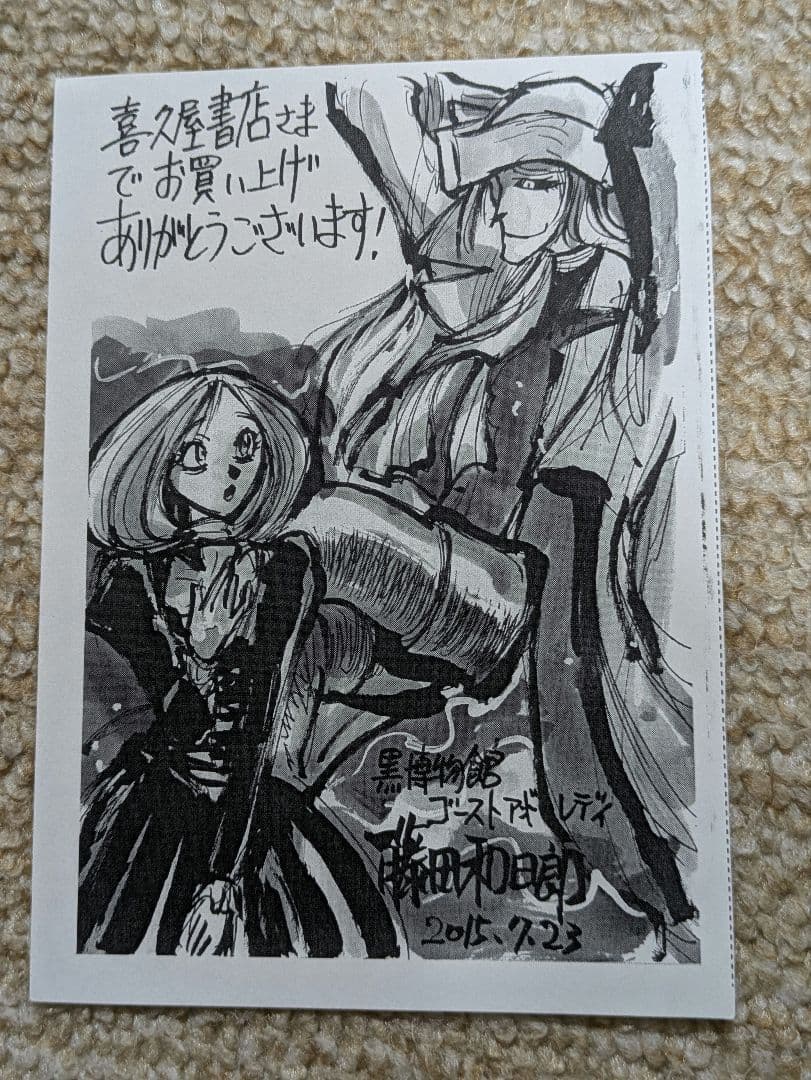 喜久屋書店さま
でお買い上げ
ありがとうございます!
黒博物館
ゴーストアンドレディ
藤田和日郎
2015.7.23